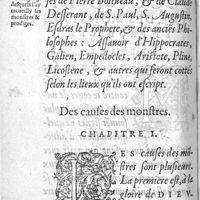 desquels l'au
recueilly ses
monstres &
prodiges.
ses de Pierre Boistueau, & de Claude
Desserant, de S. Paul, S. Augustin,
Esdras le Prophete, & des anciēs Phi-
losophes: Assauoir d'Hippocrates,
Galien, Empedocles, Aristote, Pline,
Licostene, & autres qui seront cottés
selon les lieux qu'ils ont escript.
Des causes des monstres.
CHAPITRE I.
LES causes des mō-
stres sont plusieurs.
La premiere est, à la
gloire de DIEV.